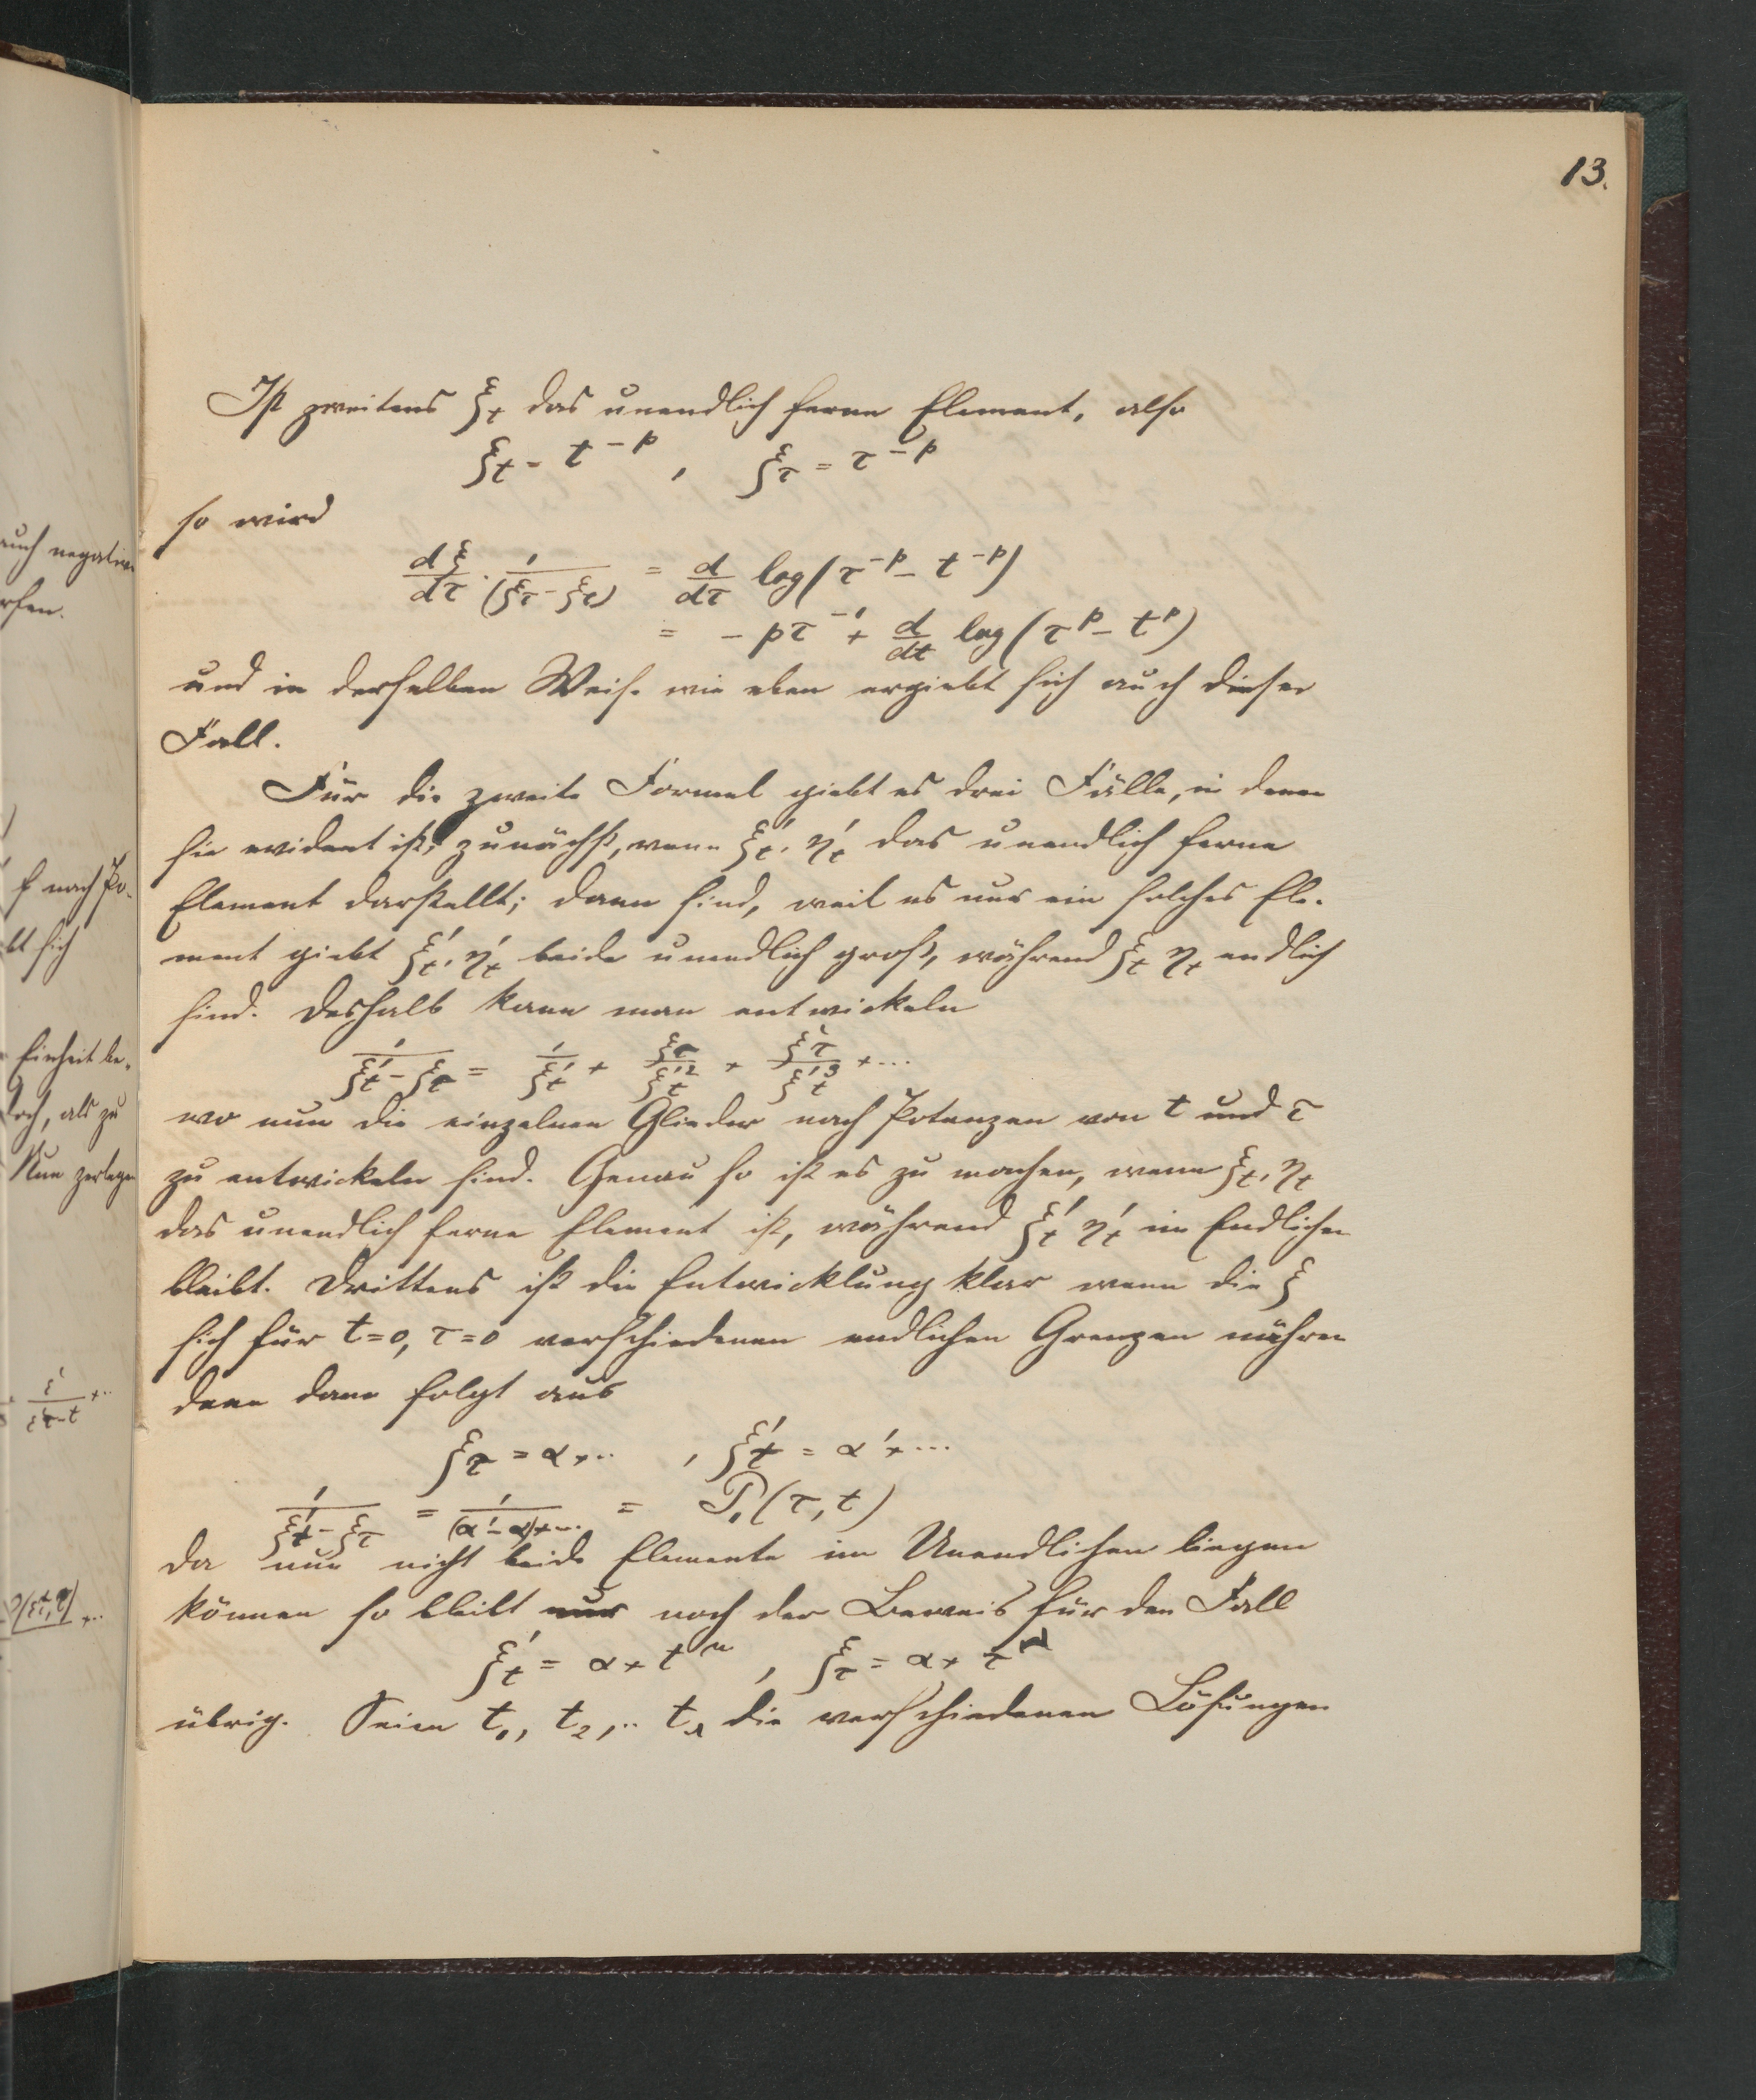 13.
Ist zweitens ξ_t das unendlich ferne Element, also
ξ_t = t^{-p}, ξ_τ = τ^{-p}
so wird
dξ/dτ · 1/(ξ_τ - ξ_t) = d/dτ log(τ^{-p} - t^{-p})
= -pτ^{-1} + d/dt log(τ^p - t^p)
und in derselben Weise wie eben ergiebt sich auch dieser
Fall.
Für die zweite Formel giebt es drei Fälle, in denen
sie evident ist, zunächst, wenn ξ'_t, η'_t das unendlich ferne
Element darstellt; dann sind, weil es nur ein solches Ele-
ment giebt ξ'_t, η'_t beide unendlich groß, während ξ_t η_t endlich
sind. Deshalb kann man entwickeln
1/(ξ'_t - ξ_τ) = 1/ξ'_t + ξ_τ/ξ'^2_t + ξ^2_τ/ξ'^3_t + ...
wo nun die einzelnen Glieder nach Potenzen von t und τ
zu entwickeln sind. Genau so ist es zu machen, wenn ξ_t, η_t
das unendlich ferne Element ist, während ξ'_t η'_t im Endlichen
bleibt. Drittens ist die Entwicklung klar wenn die ξ
sich für t=0, τ=0 verschiedenen endlichen Grenzen nähren
denn dann folgt aus
ξ_τ = α + .. , ξ'_t = α' + ...
1/(ξ'_t - ξ_τ) = 1/((α' - α) + ...) = P_1(τ, t)
da nun nicht beide Elemente im Unendlichen liegen
können so bleibt nur noch der Beweis für den Fall
ξ'_t = α + t^n, ξ_τ = α + τ^n
übrig. Seien t_1, t_2, .. t_n die verschiedenen Lösungen
auch negativ
f nach Po-
bt sich
Einheit be-
doch, als zu
Nun zerlegen